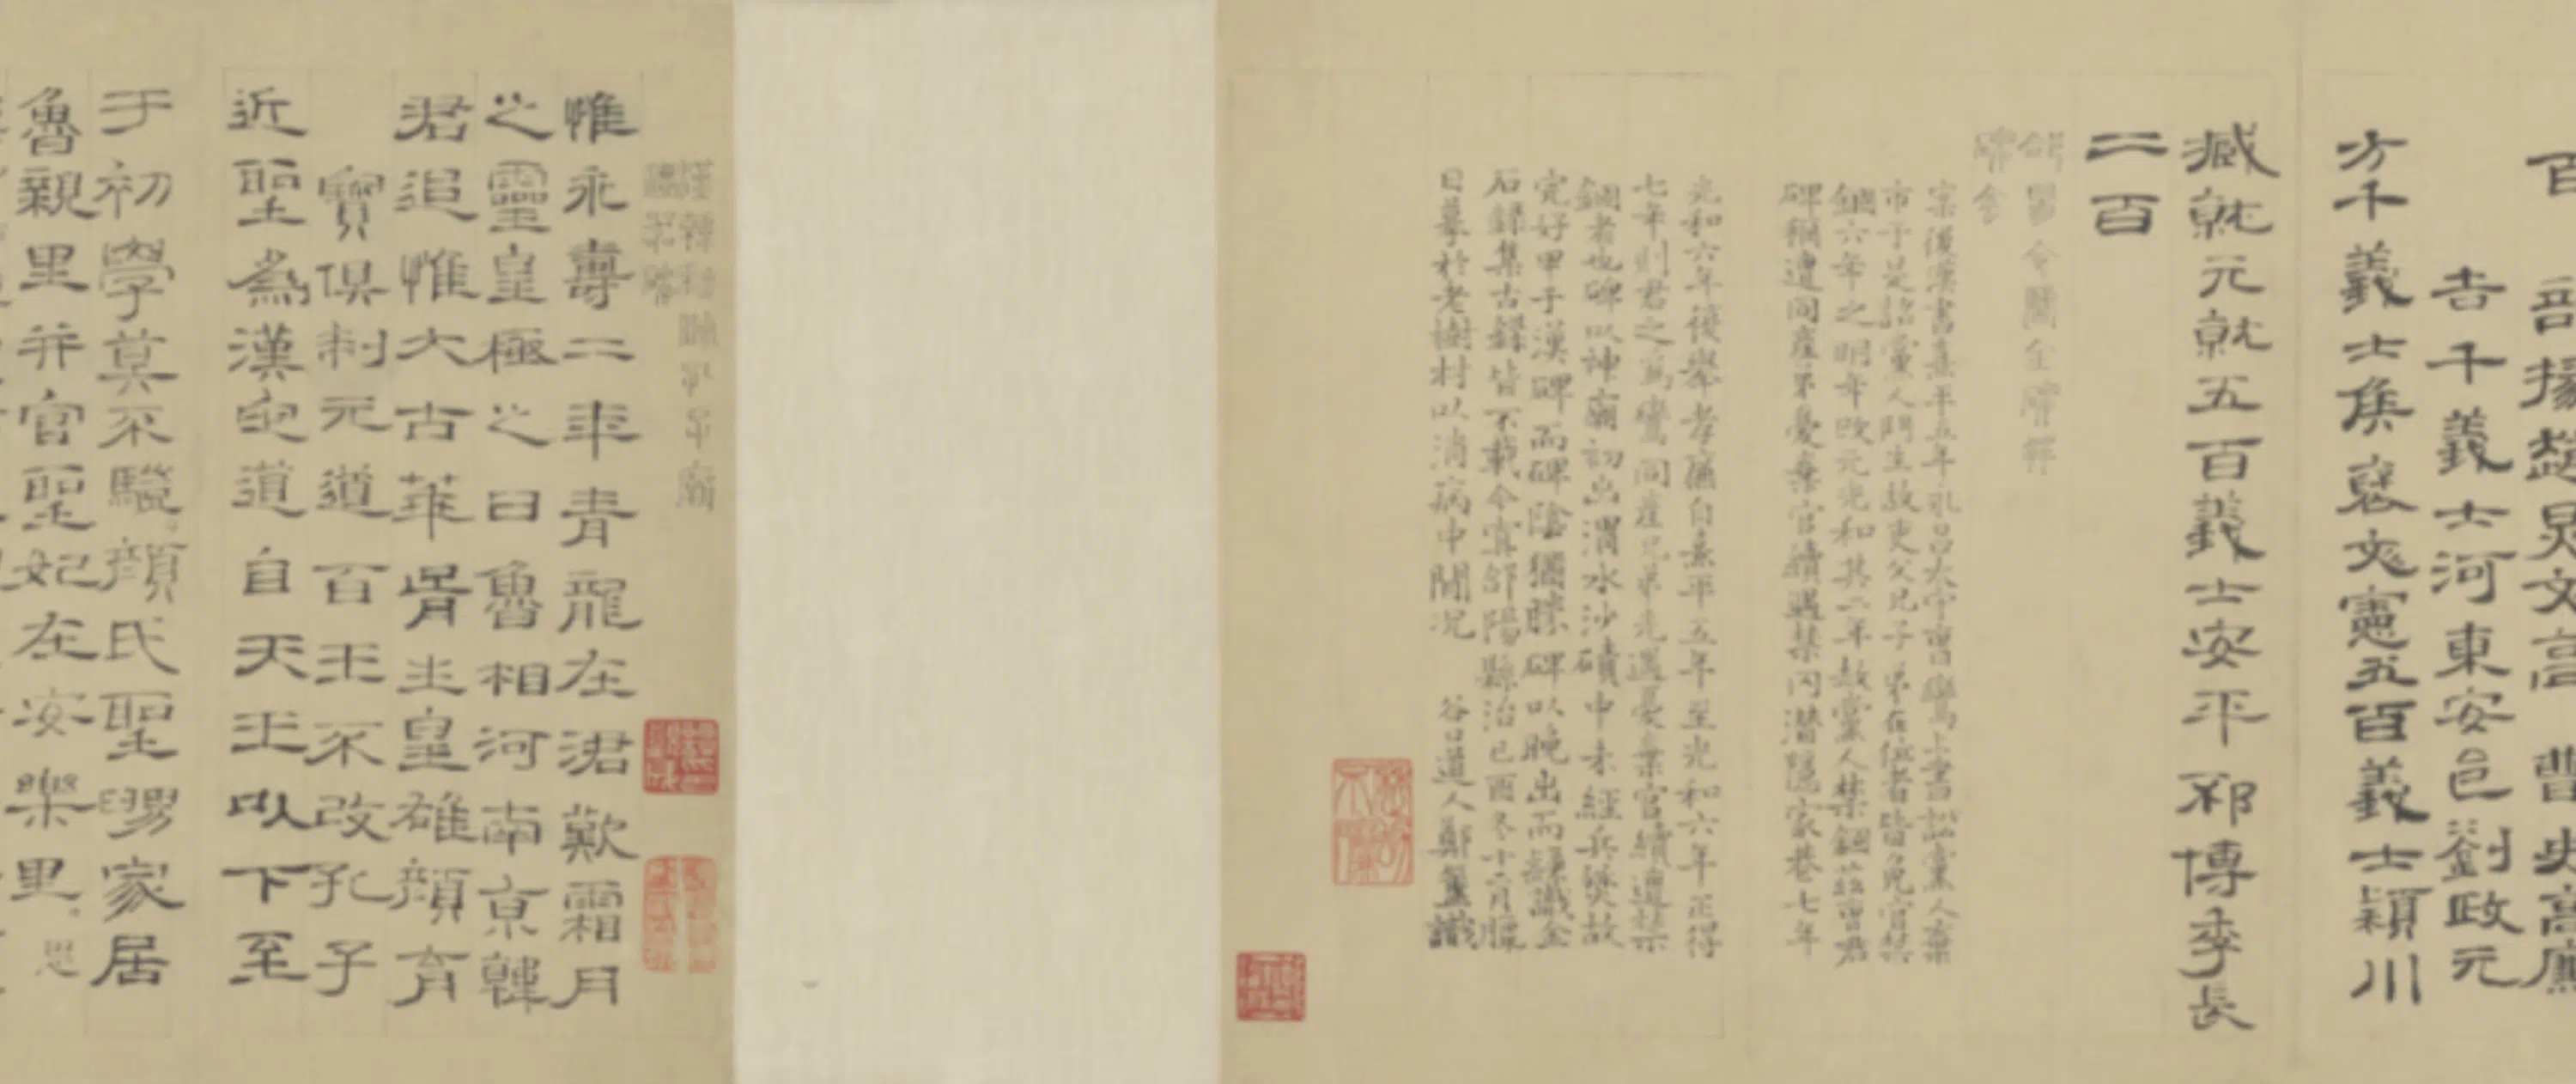 百 部掾趙炅文高 曹史高廉
吉千 義士河東安邑劉政元
方千 義士侯褒文憲五百 義士潁川
臧就元就五百 義士安平祁博季長
二百
郃陽令曹全碑釋
案後漢書熹平五年永昌太守曹鸞上書訟黨人棄
市于是詔黨人門生故吏父兄子弟在位者皆免官禁
錮六年之明年改元光和其二年赦黨人禁錮茲曹君
碑稱遭同産弟憂棄官續遇禁冈潛隱家巷七年
光和六年復舉孝廉自熹平五年至光和六年正得
七年則君之爲鸞同産兄弟先遇憂棄官續遭禁
錮者也碑以神廟初出渭水沙磧中未經兵燹故
完好甲于漢碑而碑陰獨 碑以晚出而隸 金
石録集古録皆不載今寘郃陽縣治己酉冬十二月臘
日摹於老樹村以消病中閒況 谷口道人鄭簠識
漢韓勑脩孔子廟
禮器碑
惟永壽二年青龍在涒歎霜月
之靈皇極之日魯相河南京韓
君追惟大古華胥生皇雄顏育
寶俱制元道百王不改孔子
近聖爲漢定道自天王以下至
于初學莫不驥顏氏聖舅家居
魯親里并官聖妃在安樂里思